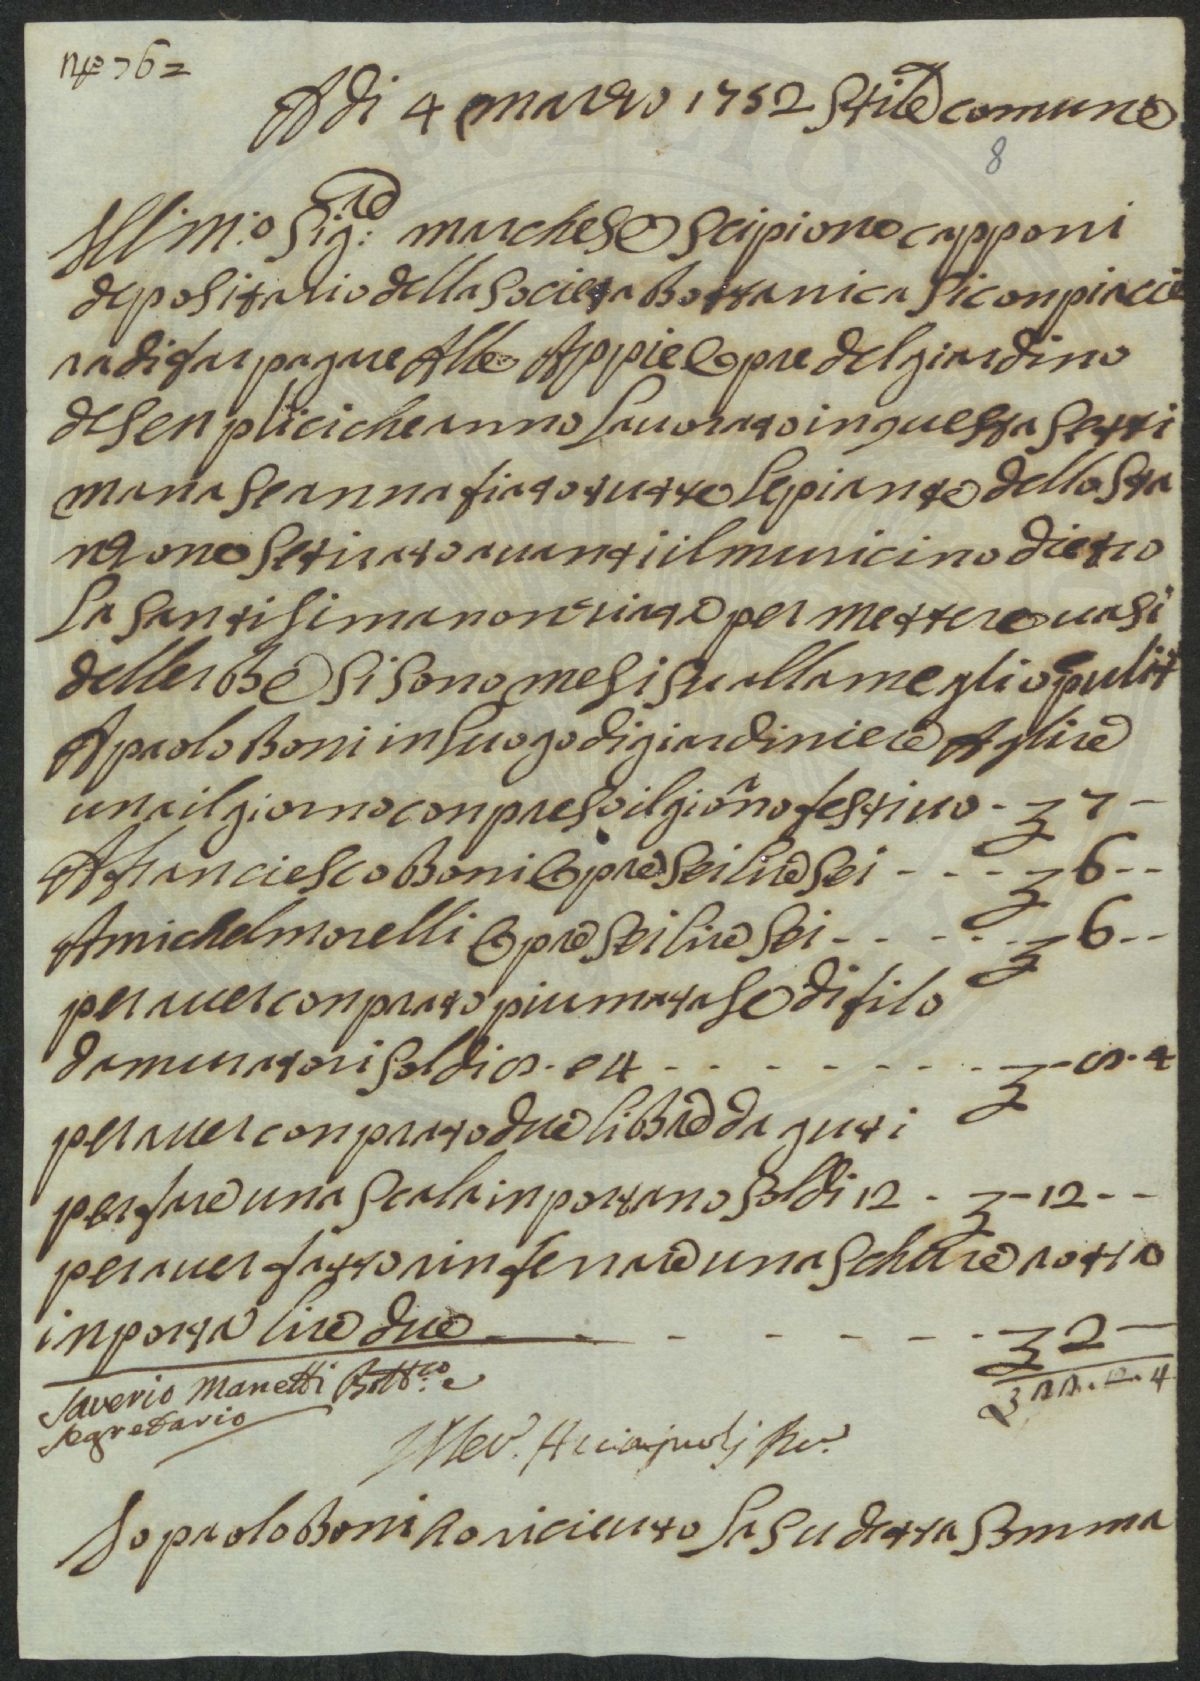 N° 762
A di 4 marzo 1752 stile comune
8
Ill:mo Sig:re marchese Scipione capponi
depositario della Societa Bottanica si conpiacie
ra di far pagare Alle Appie Opre del giardino
de senplici che anno Lauorato in questa setti
mana se annafiato tutte le piante dello sta
nzone se tirato auanti il muricino dietro
La santisima nonziata per mettere uasi
dellerbe si sono mesi su alla meglio pulit
A paolo Boni in luogo di giardiniere A lire
una il giorno conpreso il giorno festiuo - 7 -
A franciesco Boni Opre sei lire sei - - - - 6 - -
A michel morelli Opre sei lire sei - - - - 6 - -
per auer conprato piu matase di filo
da muratori soldi 8. e 4 - - - - - - - - 8. 4
per auer conprato due libre daguti
per fare una scala inportano soldi 12 - - 12 - -
per auer fatto rinferrare una rotta
inporta lire due - - - - - - 2 -
Saverio Manetti Bott:co e
Segretario
22. . 4
Io paolo Boni ho riceuto la su detta Somma